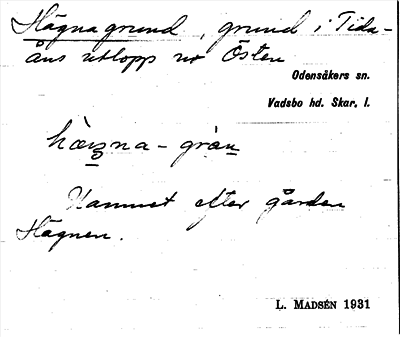 Hägnagrund, grund i Tida-
åns utlopp ur Östen
Odensåkers sn.
Vadsbo hd. Skar. l.
Namnet efter gården
Hägnen.
L. MADSÉN 1931